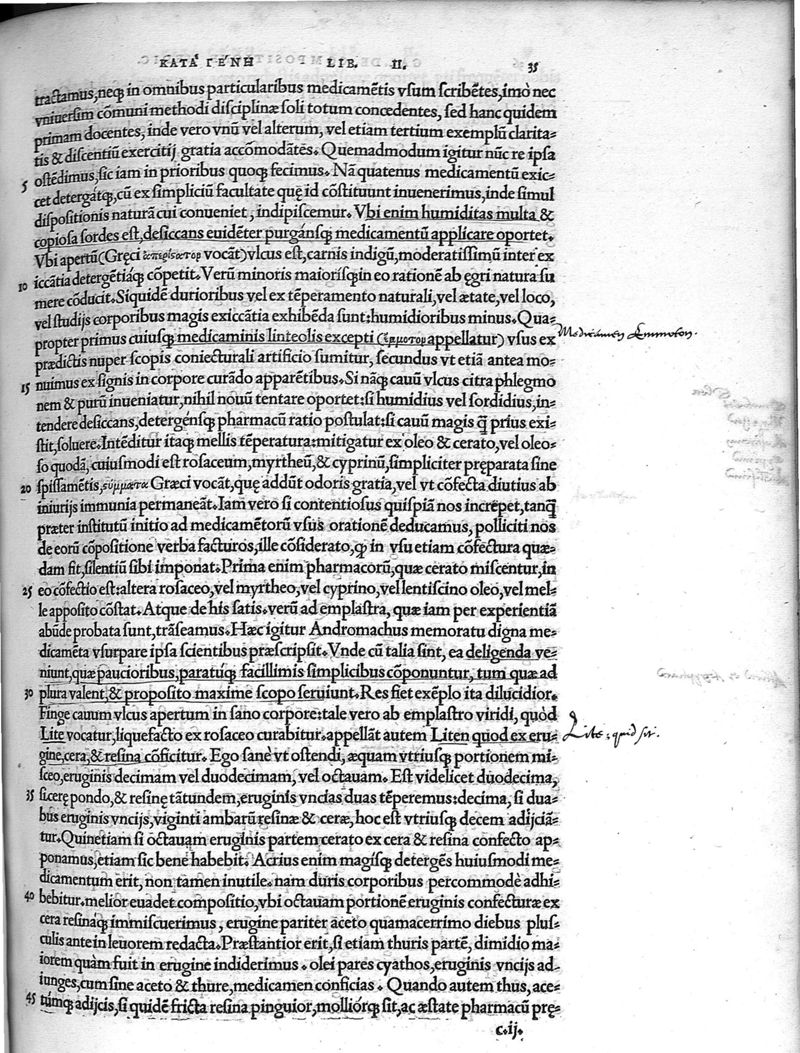 ΚΑΤΑ ΓΕΝΗ LIB. II. 35
tractamus, neq; in omnibus particularibus medicamētis vsum scribētes, imò nec
vniuersim cōmuni methodi disciplinæ soli totum concedentes, sed hanc quidem
primam docentes, inde vero vnū vel alterum, vel etiam tertium exemplū clarita-
tis & discentiū exercitij gratia accōmodātes. Quemadmodum igitur nūc re ipsa
5 ostēdimus, sic iam in prioribus quoq; fecimus. Nā quatenus medicamentū exic-
cet detergátq;, cū ex simpliciū facultate quę id cōstituunt inuenerimus, inde simul
dispositionis naturā cui conueniet, indipiscemur. Vbi enim humiditas multa &
copiosa sordes est, desiccans euidēter purgánsq; medicamentū applicare oportet.
Vbi apertū (Gręci vocāt) vlcus est, carnis indigū, moderatissimū inter ex
10 iccātia detergētiáq; cōpetit. Verū minoris maiorísq; in eo rationē ab ęgri natura su
mere cōducit. Siquidē durioribus vel ex tēperamento naturali, vel ætate, vel loco,
vel studijs corporibus magis exiccātia exhibēda sunt: humidioribus minus. Qua-
propter primus cuiusq; medicaminis linteolis excepti (ἔμμοτον appellatur) vsus ex
prædictis nuper scopis coniecturali artificio sumitur, secundus vt etiā antea mo-
15 nuimus ex signis in corpore curādo apparētibus. Si nāq; cauū vlcus citra phlegmo
nem & purū inueniatur, nihil nouū tentare oportet: si humidius vel sordidius, in-
tendere desiccans, detergénsq; pharmacū ratio postulat: si cauū magis q̄ prius exi-
stit, soluere. Intēditur itaq; mellis tēperatura: mitigatur ex oleo & cerato, vel oleo-
so quodā, cuiusmodi est rosaceum, myrtheū, & cyprinū, simpliciter pręparata sine
20 spissamētis, Græci vocāt, quę addūt odoris gratia, vel vt cōfecta diutius ab
iniurijs immunia permaneāt. Iam vero si contentiosus quispiā nos increpet, tanq̄
præter institutū initio ad medicamētorū vsus orationē deducamus, polliciti nos
de eorū cōpositione verba facturos, ille cōsiderato, q; in vsu etiam cōfectura quæ-
dam fit, silentiū sibi imponat. Prima enim pharmacorū, quæ cerato miscentur, in
25 eo cōfectio est: altera rosaceo, vel myrtheo, vel cyprino, vel lentiscino oleo, vel mel-
le apposito cōstat. Atque de his satis. verū ad emplastra, quæ iam per experientiā
abūde probata sunt, trāseamus. Hæc igitur Andromachus memoratu digna me-
dicamēta vsurpare ipsa scientibus præscripsit. Vnde cū talia sint, ea deligenda ve-
niunt, quæ paucioribus, paratúsq; facillimis simplicibus cōponuntur, tum quæ ad
30 plura valent, & proposito maxime scopo seruiunt. Res fiet exēplo ita dilucidior.
Finge cauum vlcus apertum in sano corpore: tale vero ab emplastro viridi, quòd
Lite vocatur, liquefacto ex rosaceo curabitur. appellāt autem Liten quod ex eru-
gine, cera, & resina cōficitur. Ego sanè vt ostendi, æquam vtriusq; portionem mi-
sceo, eruginis decimam vel duodecimam, vel octauam. Est videlicet duodecima,
35 si cerę pondo, & resinę tātundem, eruginis vncias duas tēperemus: decima, si dua-
bus eruginis vncijs, viginti ambarū resinæ & ceræ, hoc est vtriusq; decem adijciā-
tur. Quinetiam si octauam eruginis partem cerato ex cera & resina confecto ap-
ponamus, etiam sic bene habebit. Acrius enim magísq; detergēs huiusmodi me-
dicamentum erit, non tamen inutile. nam duris corporibus percommodè adhi-
40 bebitur. melior euadet compositio, vbi octauam portionē eruginis confecturæ ex
cera resináq; immiscuerimus, erugine pariter aceto quamacerrimo diebus plus-
culis ante in leuorem redacta. Præstantior erit, si etiam thuris partē, dimidio ma-
iorem quàm fuit in erugine indiderimus. olei pares cyathos, eruginis vncijs ad-
iunges, cum sine aceto & thure, medicamen conficias. Quando autem thus, ace-
45 túmq; adijcis, si quidē fricta resina pinguior, molliórq; sit, ac æstate pharmacū prę-
c.ij.
Medicamen Emmoton.
Lite, quid sit.